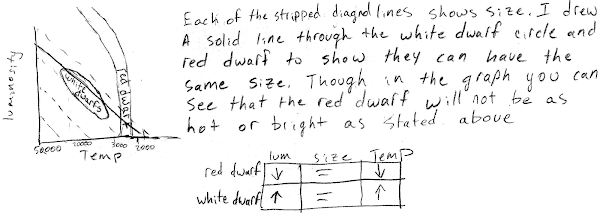 Each of the stripped diagnol lines shows size. I drew
A solid line through the white dwarf circle and
red dwarf to show they can have the
same size. Though in the graph you can
see that the red dwarf will not be as
hot or bright as stated above
luminosity
white
dwarfs
red dwarfs
50,000 20000 3000 2000
Temp
lum size Temp
red dwarf ↓ = ↓
white dwarf ↑ = ↑